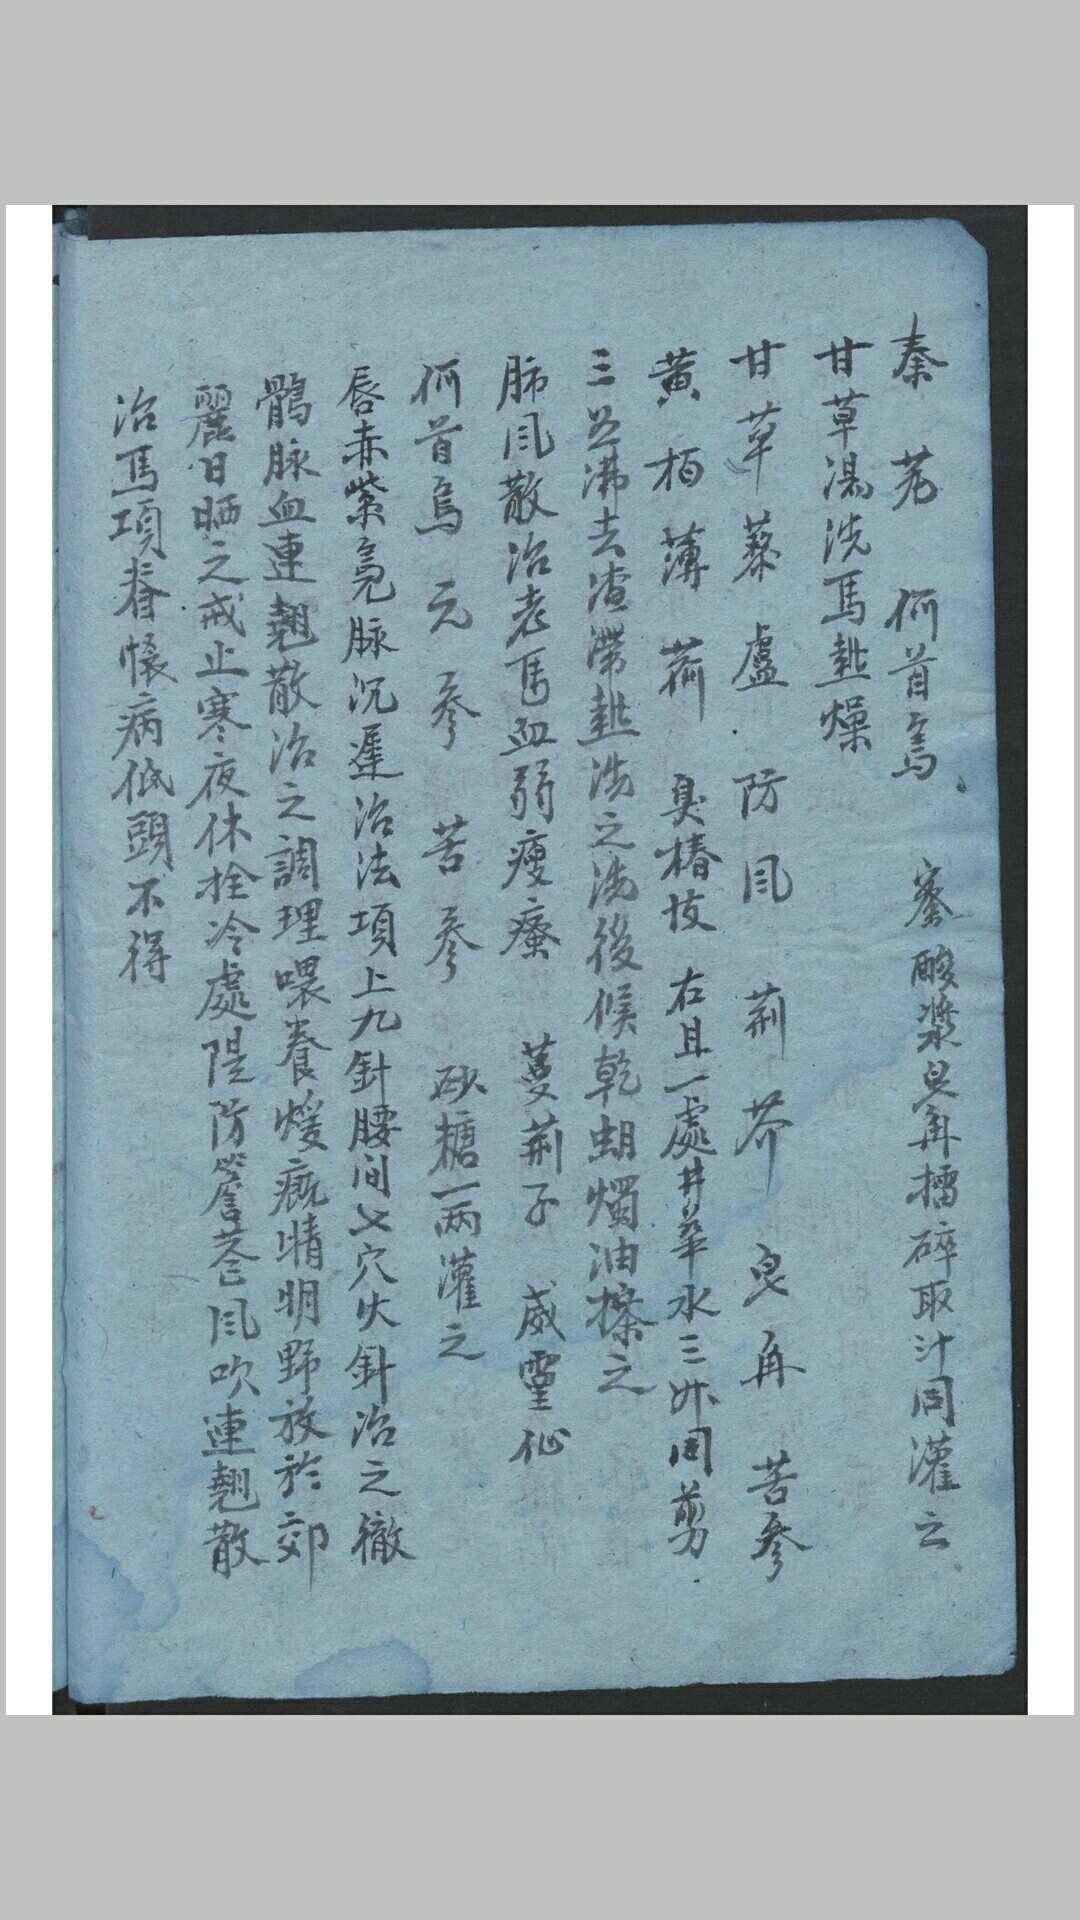 秦艽 何首烏 蜜酸漿皂角擂碎取汁同灌之
甘草湯洗馬熱燥
甘草 藜蘆 防風 荊芥 皂角 苦參
黃柏 薄荷 臭椿皮 右且一處井華水三升同剪
三五沸去渣帶熱洗之洗後候乾蝴燭油擦之
肺風散治老馬血弱瘦瘙 蔓荊子 威靈仙
何首烏 元參 苦參 砂糖一兩灌之
唇赤紫亮脉沉遲治法項上九針腰間七穴火針治之徹
鶻脉血連翹散治之調理喂養煖廐晴明野放於郊
麗日晒之戒止寒夜休拴冷處隄防簷巷風吹連翹散
治馬項脊㤥病低頭不得